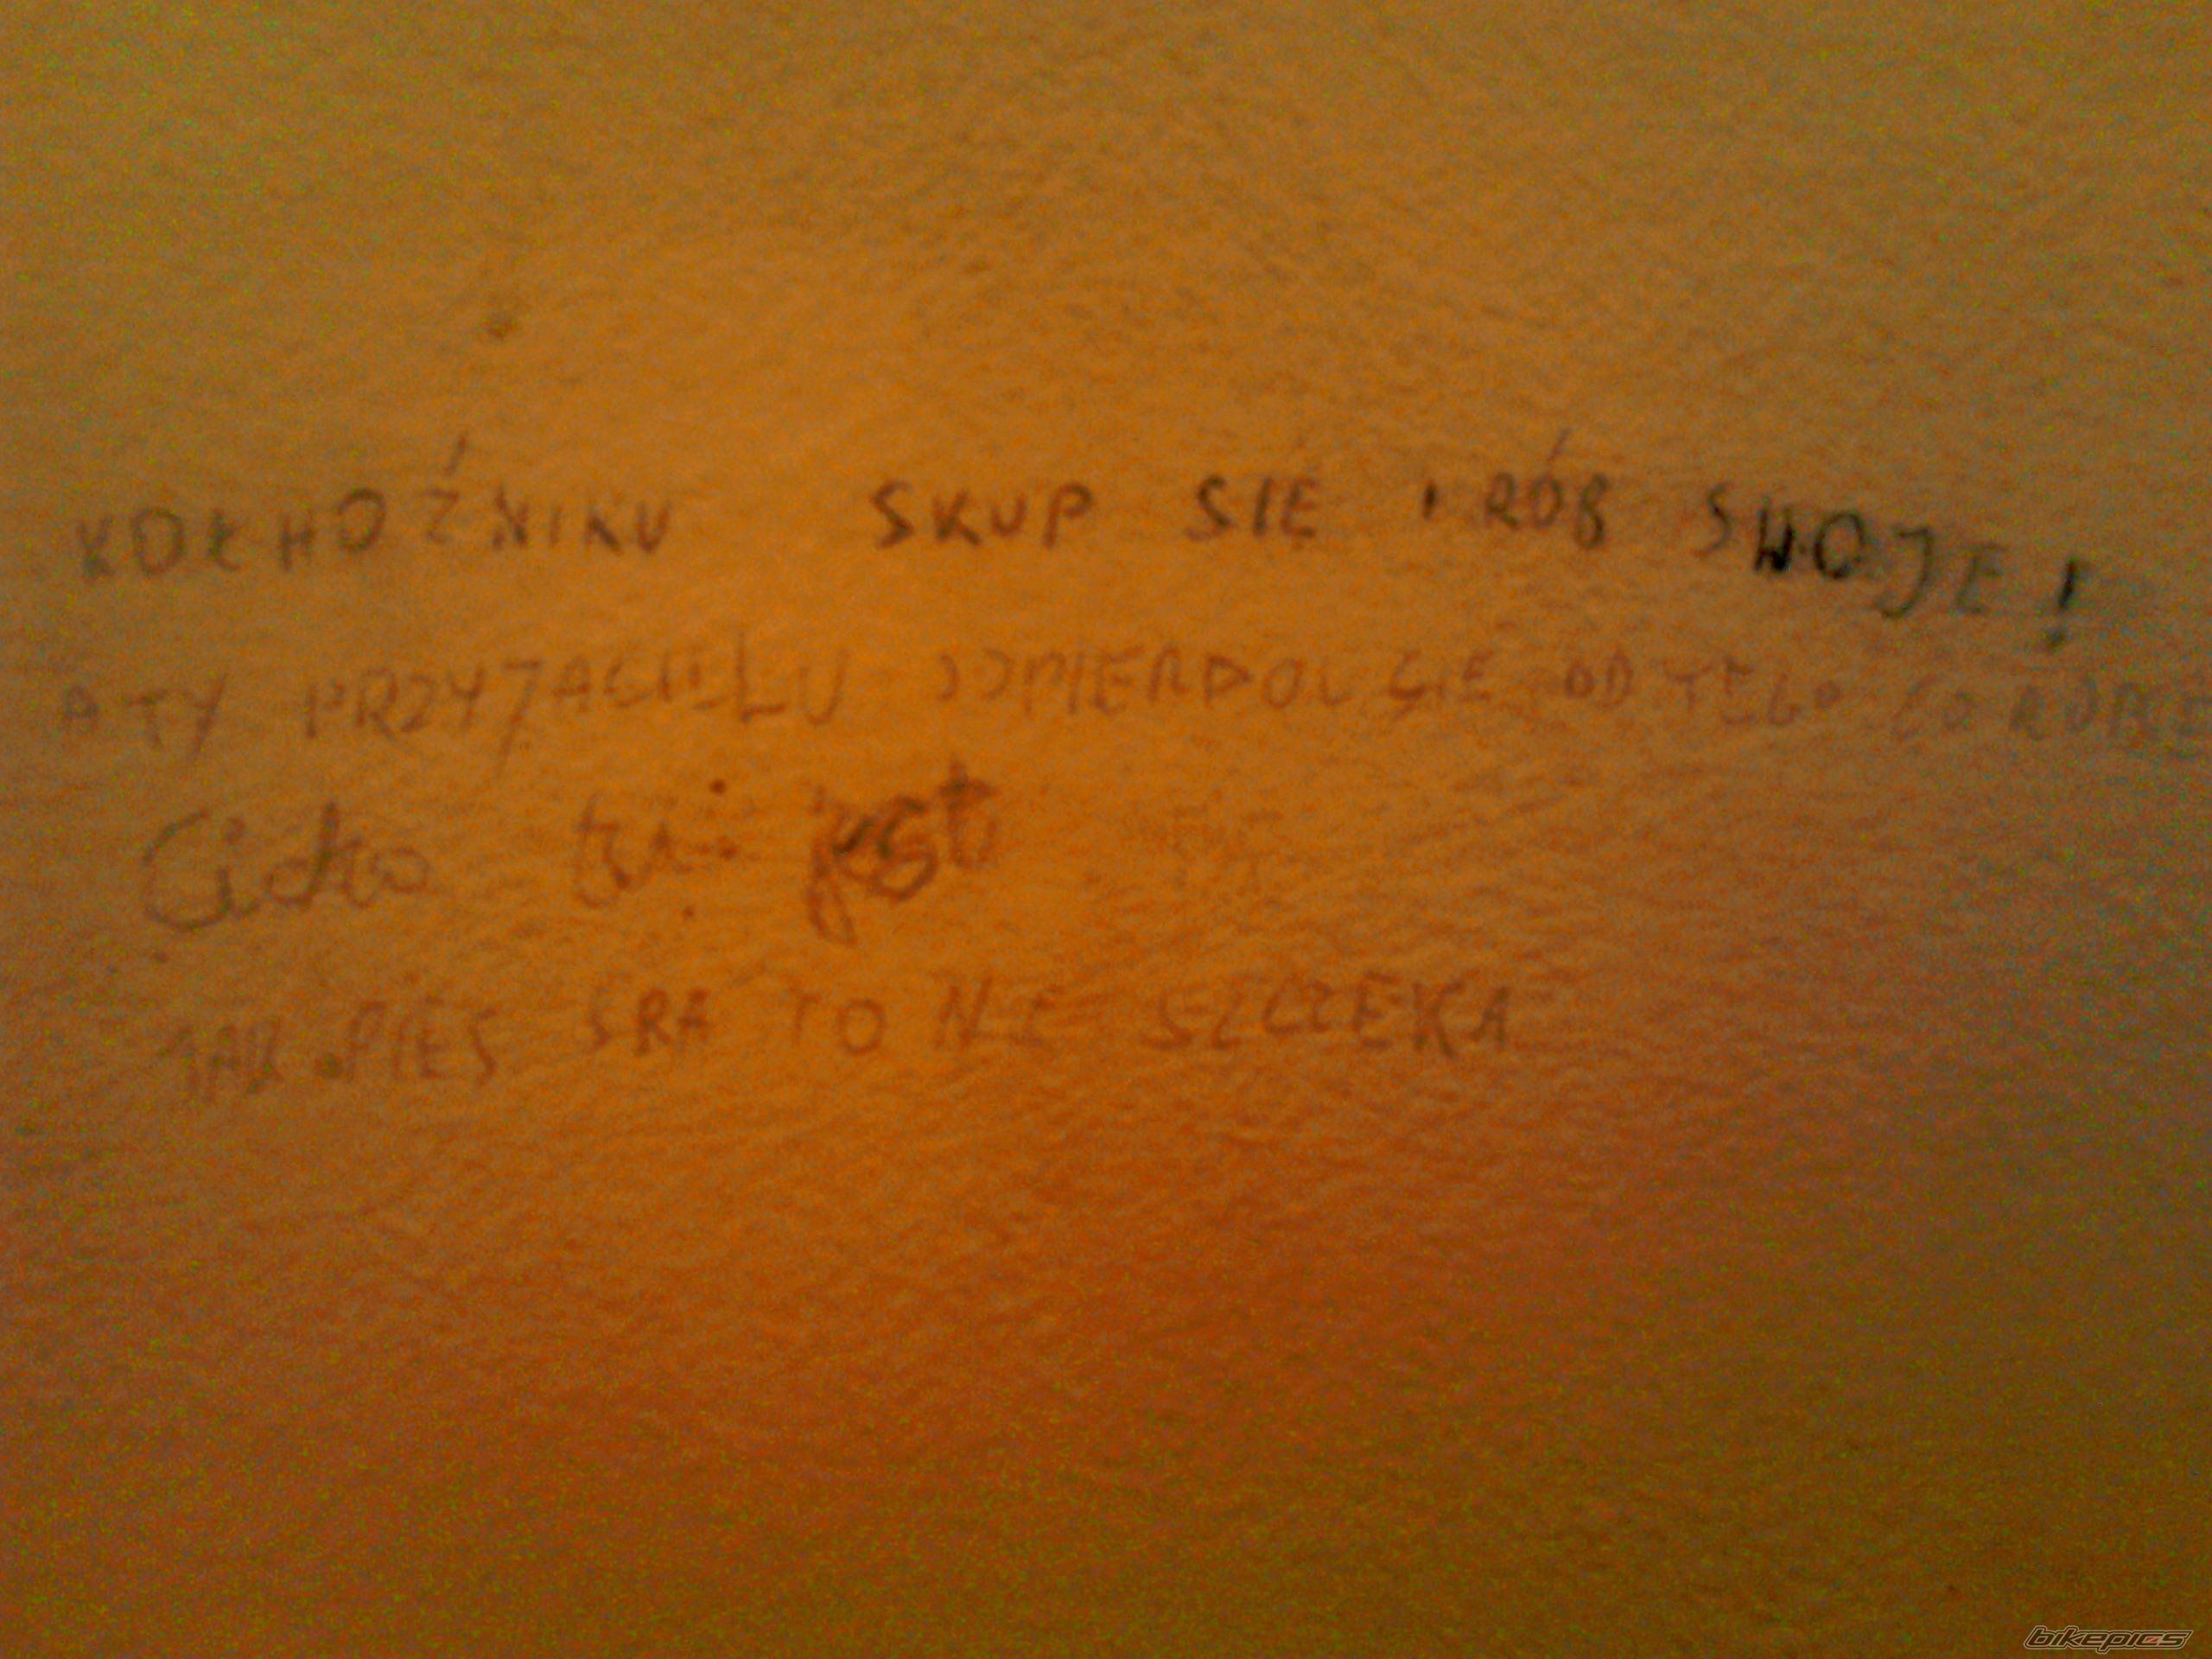 KOŁHOŹNIKU SKUP SIĘ I RÓB SWOJE!
A TY PRZYJACIELU ODPIERDOL SIĘ OD TEGO CO ROBIĘ
Cicho tu jest
JAK PIES SRA TO NIE SZCZEKA
bikepics